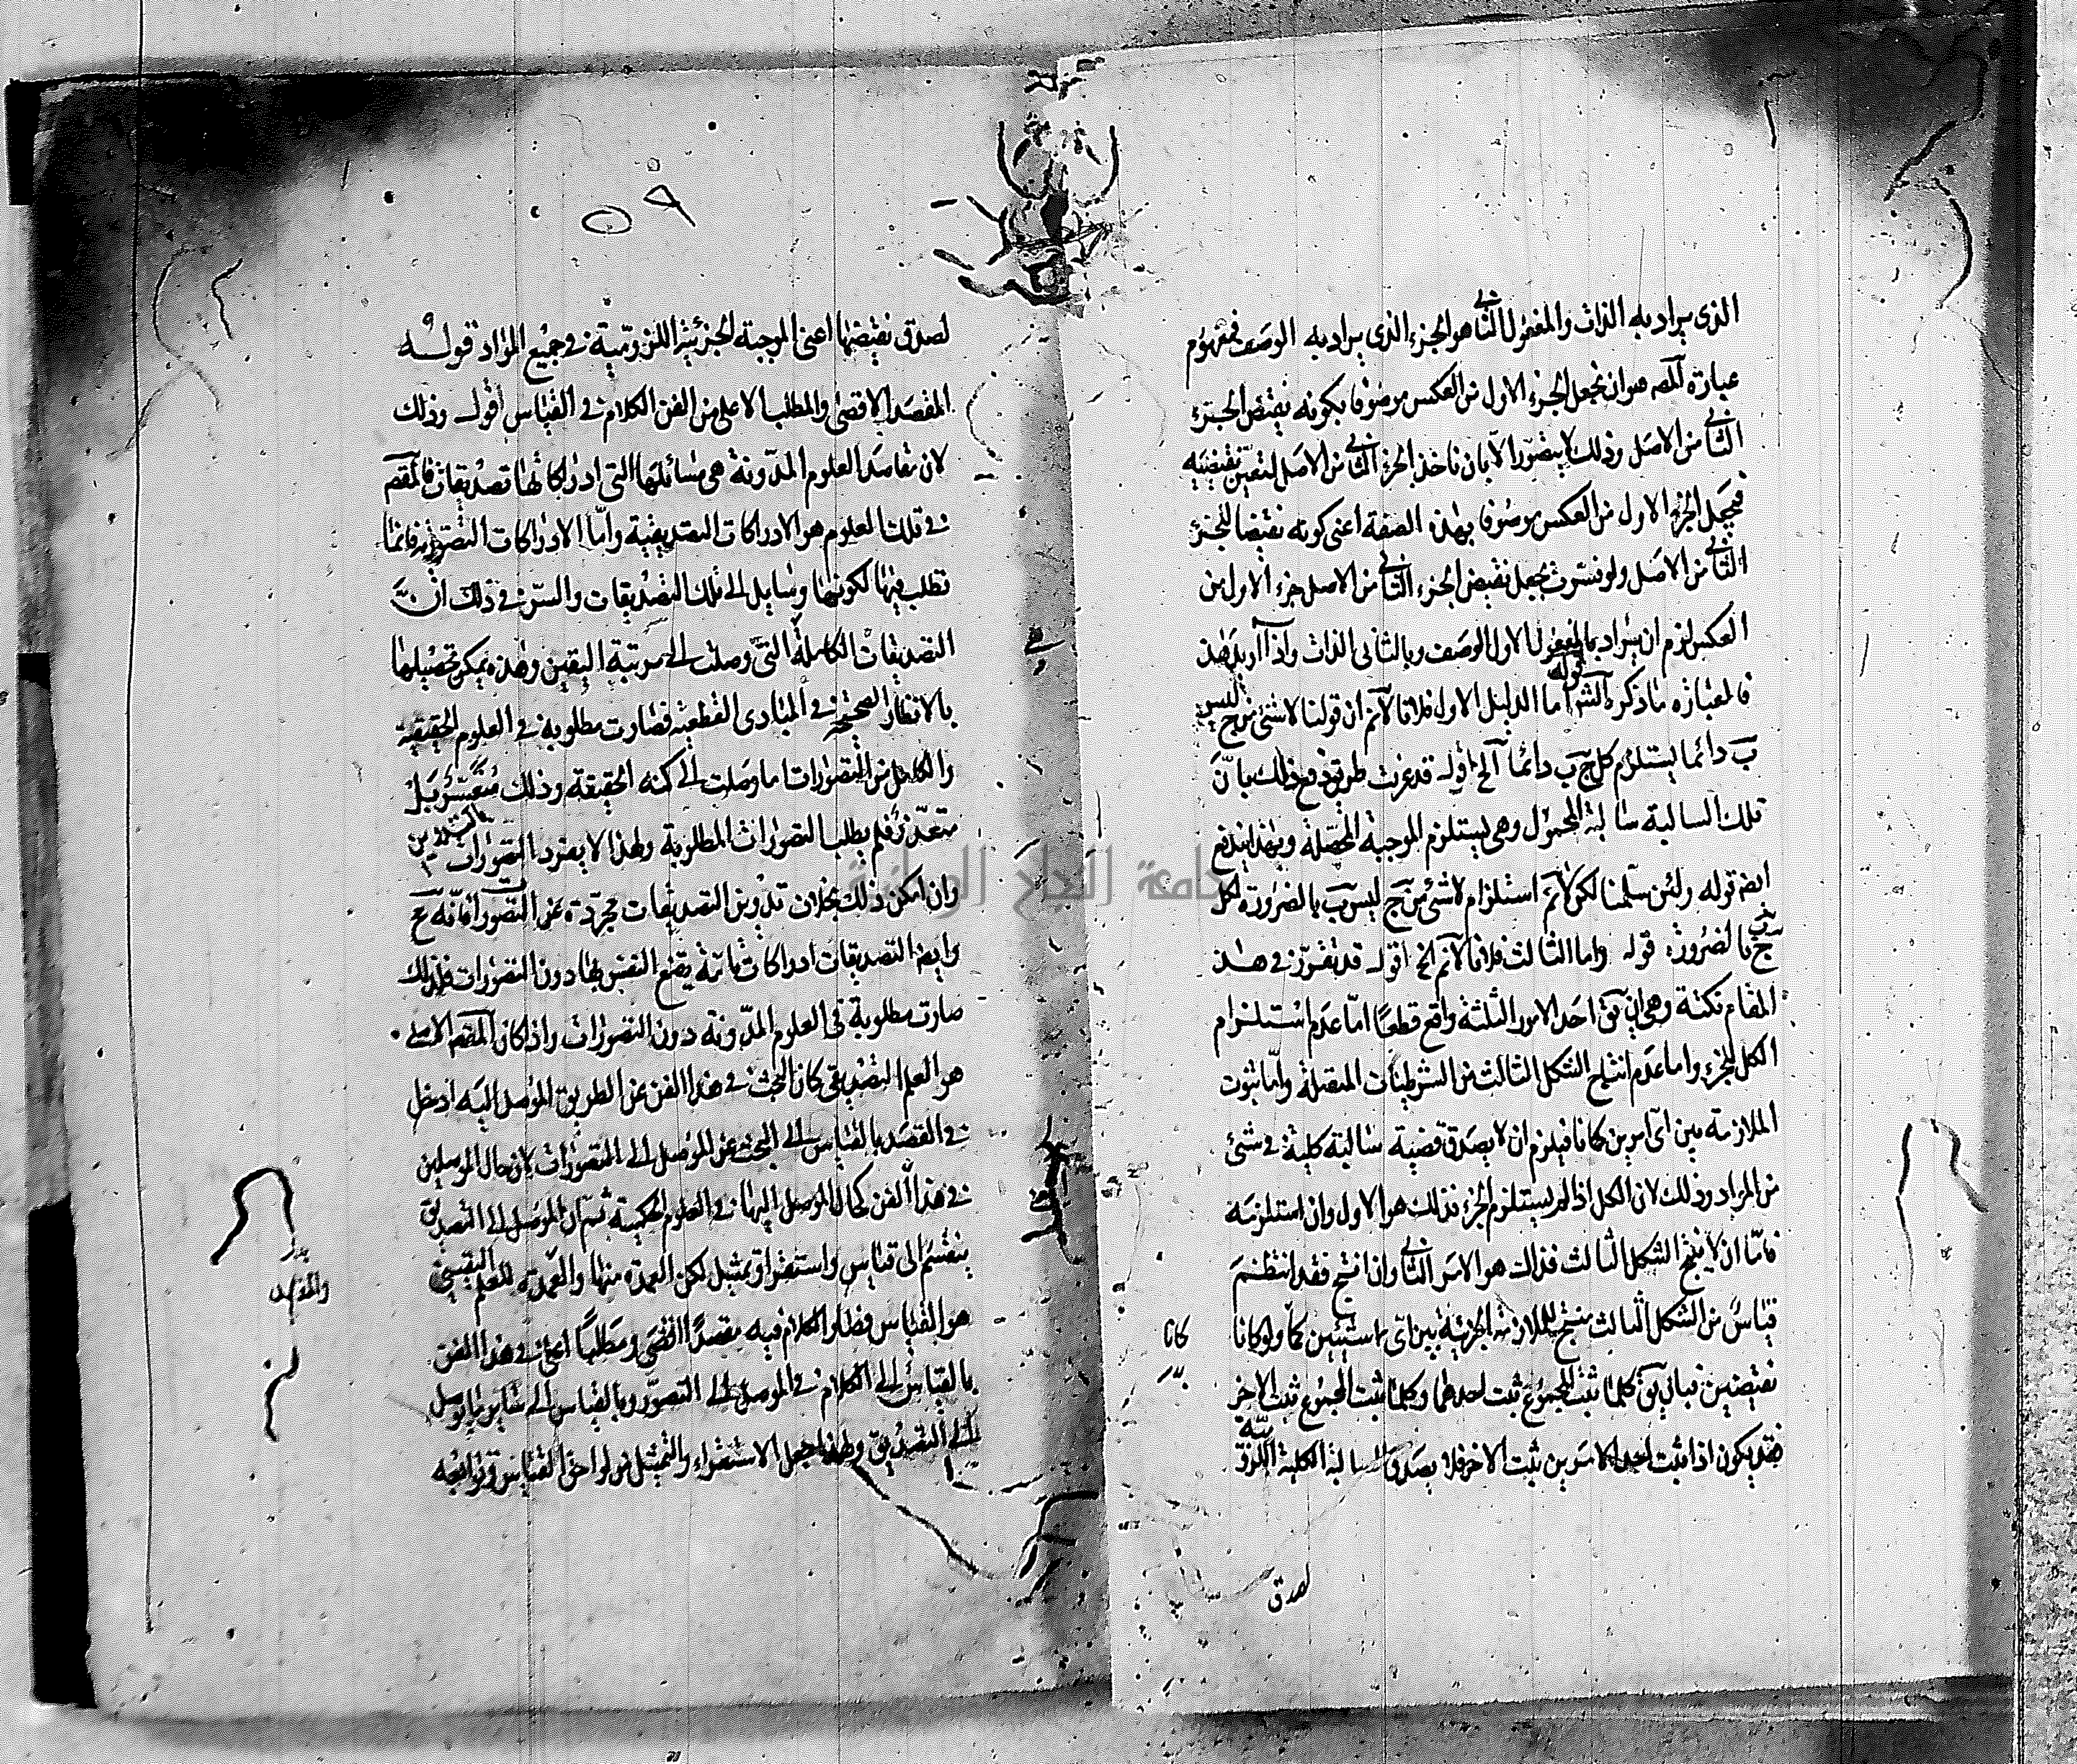 الذى يراد به الذات والمفعول الثانى هو الجزء الذى يراد به الوصف فمفهوم
عبارة المصـ هو ان نجعل الجزء الاول من العكس موصوفا بكونه نقيض الجزء
الثانى من الاصل وذلك لا يتصور الا بان ناخذ الجزء الثانى من الاصل لتعين نقيضيه
فيجعل الجزء الاول من العكس موصوفا بهذه الصفة اعنى كونه نقيضا للجزء
الثانى من الاصل ولو فسرت بجعل نقيض الجزء الثانى من الاصل جزء الاول من
العكس لزم ان يراد بالمفعول الاول الوصف وبالثانى الذات واذا اريد هذا
فالعبارة ما ذكره الشـ قوله اما الدليل الاول فلانا لانم ان قولنا لاشئ من ج ليس
ب دائما يستلزم كل ج ب دائما آلخ اقول قد عرفت طريق دفع ذلك بانّ
تلك السالبة سالبة المحمول وهى يستلزم الموجبة المحصلة وبهذا يندفع
ايضـ قوله ولئن سلمنا لكن لانم استلزام لاشئ من ج ليس ب بالضرورة لكل
ج ب بالضرورة قوله واما الثالث فلانا لانم الخ اقول قد تقرر فى هذا
المقام نكتة وهى ان يقـ احد الامور الثلثة واقع قطعًا امّا عدم استلزام
الكل للجزء واما عدم انتاج الشكل الثالث من الشرطيات المتصلة وامّا ثبوت
الملازمة بين اى امرين كانا فيلزم ان لا يصدق قضية سالبة كلية فى شئ
من المواد وذلك لان الكل اذا لم يستلزم الجزء فذلك هو الاول وان استلزمه
فامّا ان لا ينتج الشكل الثالث فذاك هو الامر الثانى وان انتج فقد انتظم
قياسٌ من الشكل الثالث منتج للملازمة الجزئية بين اى شيئين كانا ولو كانا
نقيضين فبان يقـ كلما ثبت المجموع ثبت احدهما وكلما ثبت المجموع ثبت الاخر
فقد يكون اذا ثبت احد الامرين ثبت الاخر فلا يصدق السالبة الكلية اللزومية
كانا
لصدق
٥٩
لصدق نقيضها اعنى الموجبة الجزئية اللزوميّة فى جميع المواد قولـه
المقصد الاقصى والمطلب الاعلى من الفن الكلام فى القياس اقول وذلك
لان مقاصد العلوم المدوّنة هى مسائلها التى ادراكاتها تصديقات فالمقصـ
فى تلك العلوم هو الادراكات التصديقية وامّا الادراكات التصورية فانما
تطلب فيها لكونها وسايل الى تلك التصديقات والسرّ فى ذلك انّ
التصديقات الكاملة التى وصلت الى مرتبة اليقين وهذه يمكن تحصيلها
بالانظار الصحيحة فى المبادى القطعية فصارت مطلوبة فى العلوم الحقيقية
والكامل من التصورات ما وصلت الى كنه الحقيقة وذلك متعسّر بل
متعذر فلم يطلب التصورات المطلوبة ولهذا لا يفرد التصورات بالتدوين
وان امكن ذلك بخلاف تدوين التصديقات مجردة عن التصور فانه مح
وايضـ التصديقات ادراكات تامة يقنع النفس بها دون التصورات فلذلك
صارت مطلوبة فى العلوم المدوّنة دون التصورات واذا كان المقصـ الاصلى
هو العلم التصديقى كان البحث فى هذا الفن عن الطريق الموصل اليه ادخل
فى القصد بالقياس الى البحث عن الموصل الى التصورات لان حال الموصلين
فى هذا الفن كحال الموصل اليها فى العلوم الحكمية ثم ان الموصل الى التصديق
ينقسم الى قياس واستقرا وتمثيل لكن العمدة منها والعمدة للعلم اليقينى
هو القياس فصار الكلام فيه مقصدًا اقصى ومطلبًا اعلى فى هذا الفن
بالقياس الى الكلام فى الموصل الى التصوّر وبالقياس الى ساير ما يوصل
الى التصديق ولهذا جعل الاستقراء والتمثيل من لواحق القياس وتوابعه